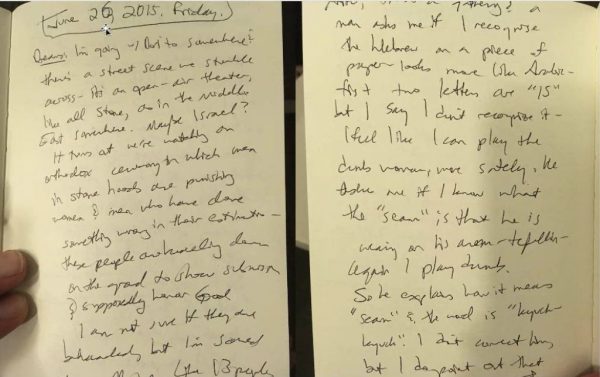 June 26, 2015. Friday.
Dream: I'm going w/ Dori to somewhere &
there's a street scene we stumble
across - it's an open-air theater,
like all stone, as in the Middle
East somewhere. Maybe Israel?
It turns out we're watching an
orthodox ceremony in which men
in stone hoods are punishing
women & men who have done
something wrong in their estimation -
these people are kneeling down
on the ground to show submission
& supposedly honor God
I am not sure if they are
beheaded, but I'm scared
13 people
man asks me if I recognize
the Hebrew on a piece of
paper - looks more like Arabic -
first two letters are "IS"
but I say I don't recognize it -
I feel like I can play the
dumb woman, more safely. He
asks me if I know what
the "seam" is that he is
wearing on his arm - tefillin -
again I play dumb.
So he explains how it means
"seam" & the word is
I don't correct him,
but I do point out that